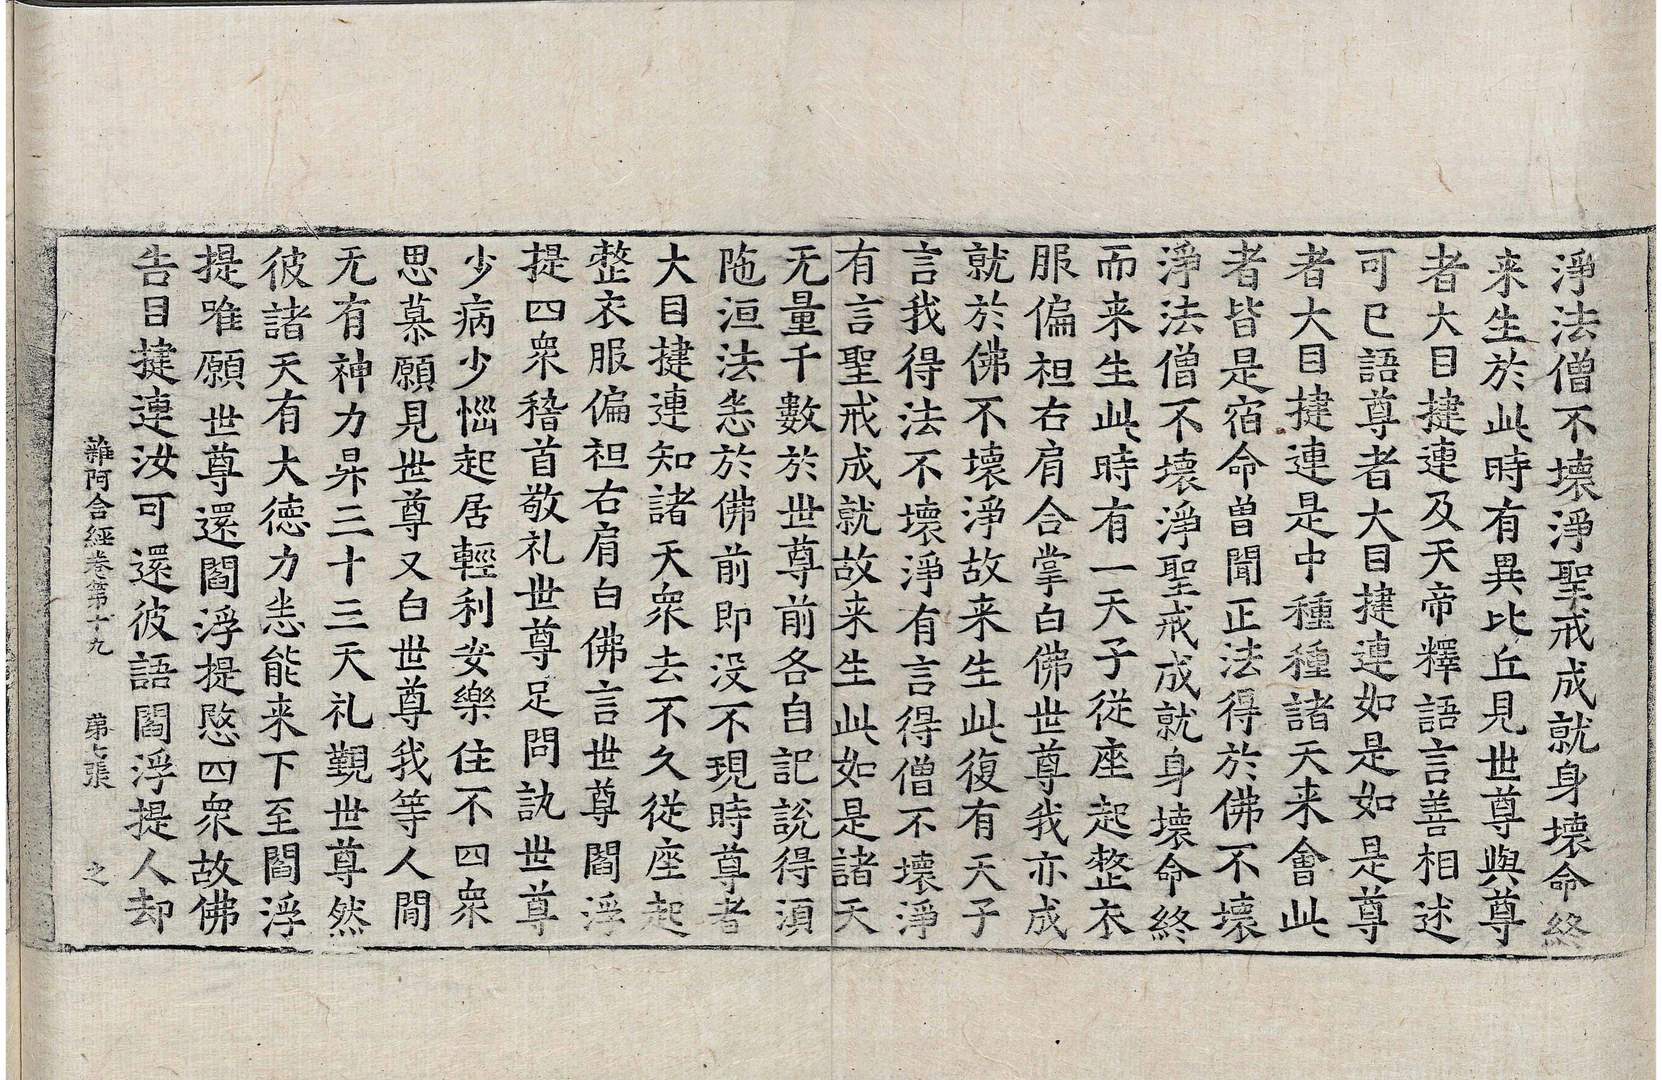 淨法僧不壞淨聖戒成就身壞命終
来生於此時有異比丘見世尊與尊
者大目揵連及天帝釋語言善相述
可已語尊者大目揵連如是如是尊
者大目揵連是中種種諸天来會此
者皆是宿命曾聞正法得於佛不壞
淨法僧不壞淨聖戒成就身壞命終
而来生此時有一天子從座起整衣
服偏袒右肩合掌白佛世尊我亦成
就於佛不壞淨故来生此復有天子
言我得法不壞淨有言得僧不壞淨
有言聖戒成就故来生此如是諸天
无量千數於世尊前各自記說得須
陁洹法悉於佛前即没不現時尊者
大目揵連知諸天衆去不久從座起
整衣服偏袒右肩白佛言世尊閻浮
提四衆稽首敬礼世尊足問訊世尊
少病少惱起居輕利安樂住不四衆
思慕願見世尊又白世尊我等人間
无有神力昇三十三天礼觐世尊然
彼諸天有大德力悉能来下至閻浮
提唯願世尊還閻浮提愍四衆故佛
告目揵連汝可還彼語閻浮提人却
雜阿含經卷第十九 第七張 之